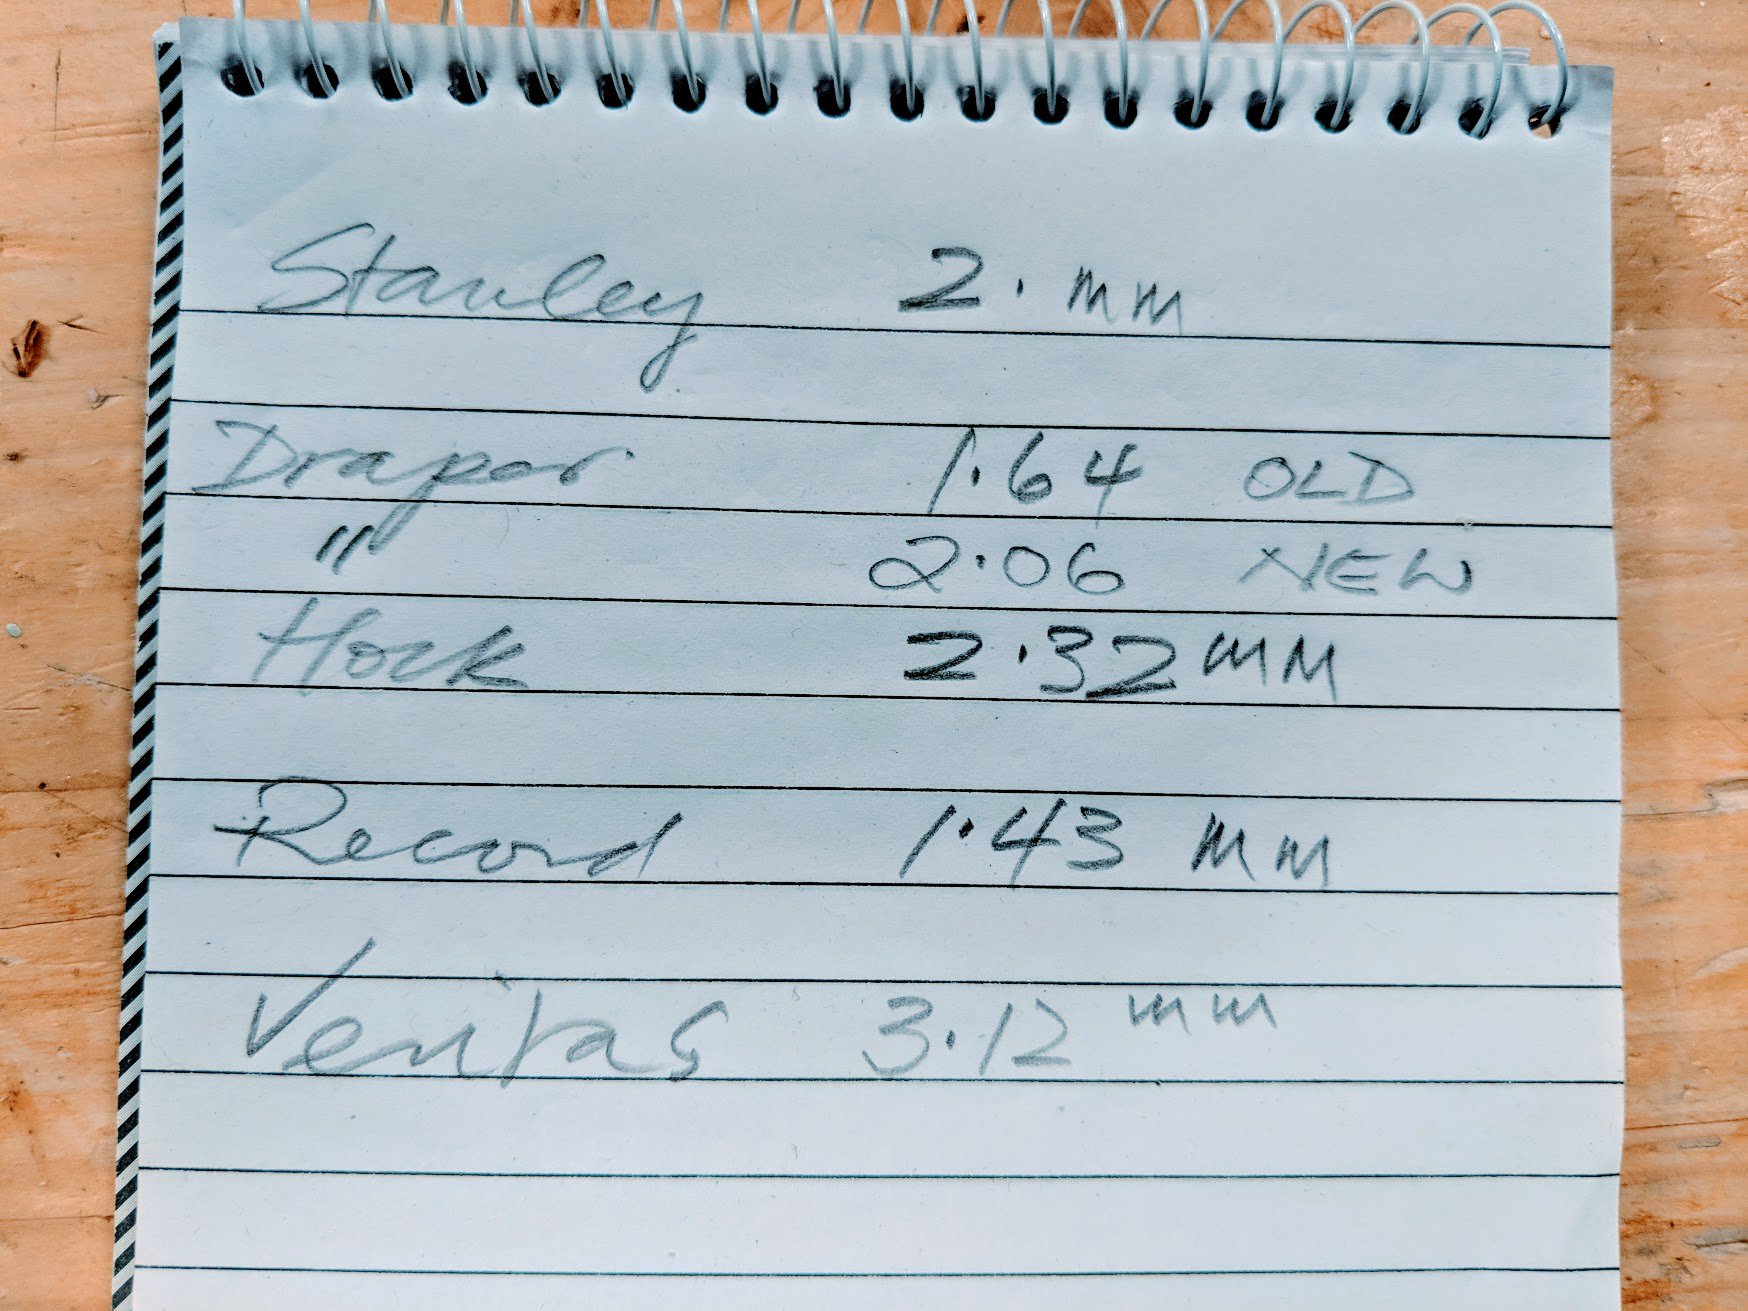 Stanley 2. mm
Draper 1.64 OLD
" 2.06 NEW
Hock 2.32 mm
Record 1.43 mm
Veritas 3.12 mm